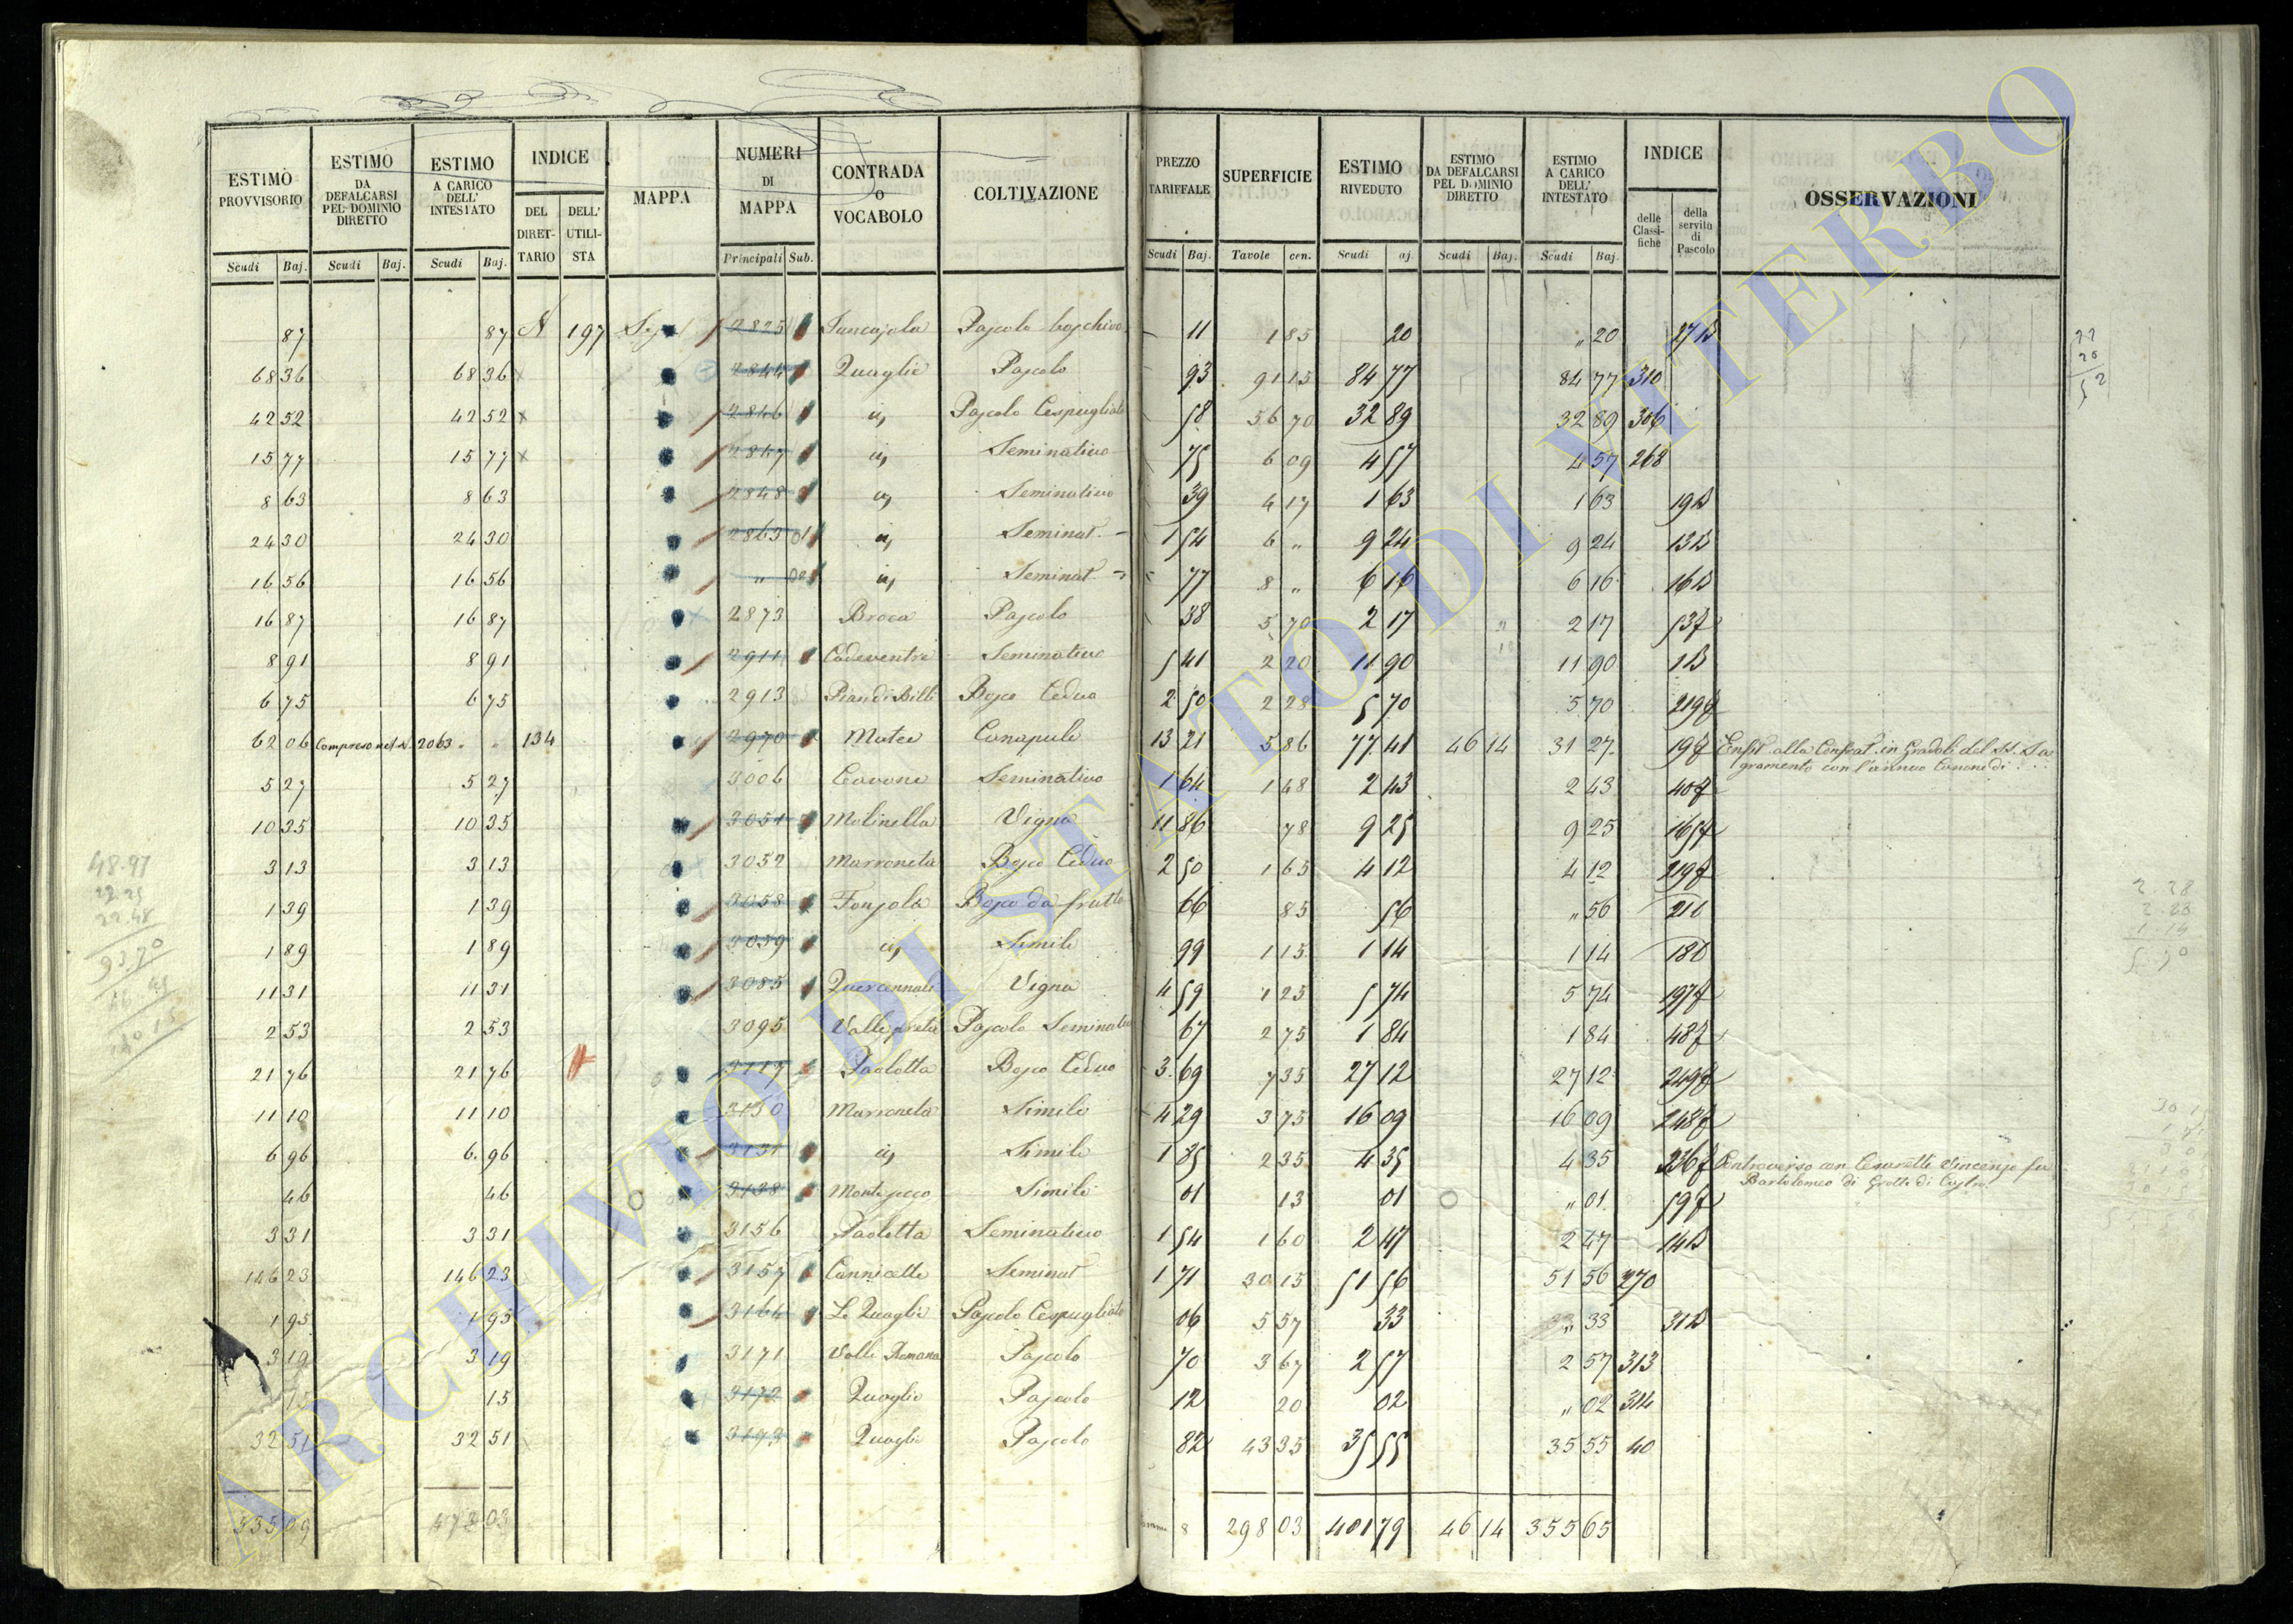 ESTIMO PROVVISORIO | ESTIMO DA DEFALCARSI PEL DOMINIO DIRETTO | ESTIMO A CARICO DELL' INTESTATO | INDICE | MAPPA | NUMERI DI MAPPA | CONTRADA O VOCABOLO | COLTIVAZIONE | PREZZO TARIFFALE | SUPERFICIE | ESTIMO RIVEDUTO | ESTIMO DA DEFALCARSI PEL DOMINIO DIRETTO | ESTIMO A CARICO DELL' INTESTATO | INDICE | OSSERVAZIONI
DEL DIRETTARIO | DELL' UTILISTA | delle Classifiche | della servitù di Pascolo
Scudi Baj. | Scudi Baj. | Scudi Baj. | Principali Sub. | Scudi Baj. | Tavole cen. | Scudi aj. | Scudi Baj. | Scudi Baj.
87 | 87 | 197 | 2825 | Pascolo boschivo | 11 | 1 85 | 20 | " 20 | 27
68 36 | 68 36 | 2844 | Quaglie | Pascolo | 93 | 91 15 | 84 77 | 84 77 | 310
42 52 | 42 52 | x | 2846 | Pascolo Cespugliato | 58 | 56 70 | 32 89 | 32 89 | 306
15 77 | 15 77 | x | 2847 | Seminativo | 75 | 6 09 | 4 57 | 4 57 | 268
8 63 | 8 63 | 2848 | Seminativo | 39 | 4 17 | 1 63 | 1 63 | 19
24 30 | 24 30 | 2863 01 | Seminat. | 1 54 | 6 " | 9 24 | 9 24 | 13
16 56 | 16 56 | " 02 | Seminat. | 77 | 8 " | 6 16 | 6 16 | 16
16 87 | 16 87 | 2873 | Broca | Pascolo | 38 | 5 70 | 2 17 | 2 17 | 53
8 91 | 8 91 | 2911 | Seminativo | 5 41 | 2 20 | 11 90 | 11 90 | 1
6 75 | 6 75 | 2913 | Bosco Ceduo | 2 50 | 2 28 | 5 70 | 5 70 | 219
62 06 | Compreso nel N. 2063 | 134 | 2970 | Canapule | 13 21 | 5 86 | 77 41 | 46 14 | 31 27 | 19 | alla Confrat. in Gradoli del SS. Sa
gramento con l'annuo Canone di
5 27 | 5 27 | 3006 | Cavone | Seminativo | 1 64 | 1 48 | 2 43 | 2 43 | 40
10 35 | 10 35 | 3051 | Molinella | Vigna | 11 86 | 78 | 9 25 | 9 25 | 165
3 13 | 3 13 | 3052 | Marroneta | Bosco Ceduo | 2 50 | 1 65 | 4 12 | 4 12 | 219
1 39 | 1 39 | 3058 | Bosco da frutto | 66 | 85 | 56 | " 56 | 21
1 89 | 1 89 | 3059 | Simile | 99 | 1 15 | 1 14 | 1 14 | 18
11 31 | 11 31 | 3085 | Vigna | 4 59 | 1 25 | 5 74 | 5 74 | 197
2 53 | 2 53 | 3095 | Pascolo Seminativo | 67 | 2 75 | 1 84 | 1 84 | 48
21 76 | 21 76 | 3117 | Paoletta | Bosco Ceduo | 3 69 | 7 35 | 27 12 | 27 12 | 249
11 10 | 11 10 | 3130 | Marroneta | Simile | 4 29 | 3 75 | 16 09 | 16 09 | 248
6 96 | 6 96 | 3131 | Simile | 1 85 | 2 35 | 4 35 | 4 35 | 236 | Controverso con Vincenzo fu
Bartolomeo di Grotte di Castro
46 | 46 | 3138 | Simile | 01 | 13 | 01 | " 01 | 59
3 31 | 3 31 | 3156 | Paoletta | Seminativo | 1 54 | 1 60 | 2 47 | 2 47 | 14
146 23 | 146 23 | 3157 | Cannicelle | Seminat | 1 71 | 30 15 | 51 56 | 51 56 | 270
1 95 | 1 95 | 3164 | Le Quaglie | Pascolo Cespugliato | 06 | 5 57 | 33 | " 33 | 31
3 19 | 3 19 | 3171 | Valle Romana | Pascolo | 70 | 3 67 | 2 57 | 2 57 | 313
15 | 15 | 3172 | Quaglie | Pascolo | 12 | 20 | 02 | " 02 | 314
32 51 | 32 51 | 3193 | Quaglie | Pascolo | 82 | 43 35 | 35 55 | 35 55 | 40
535 09 | 473 03 | 8 | 298 03 | 401 79 | 46 14 | 355 65
ARCHIVIO DI STATO DI VITERBO